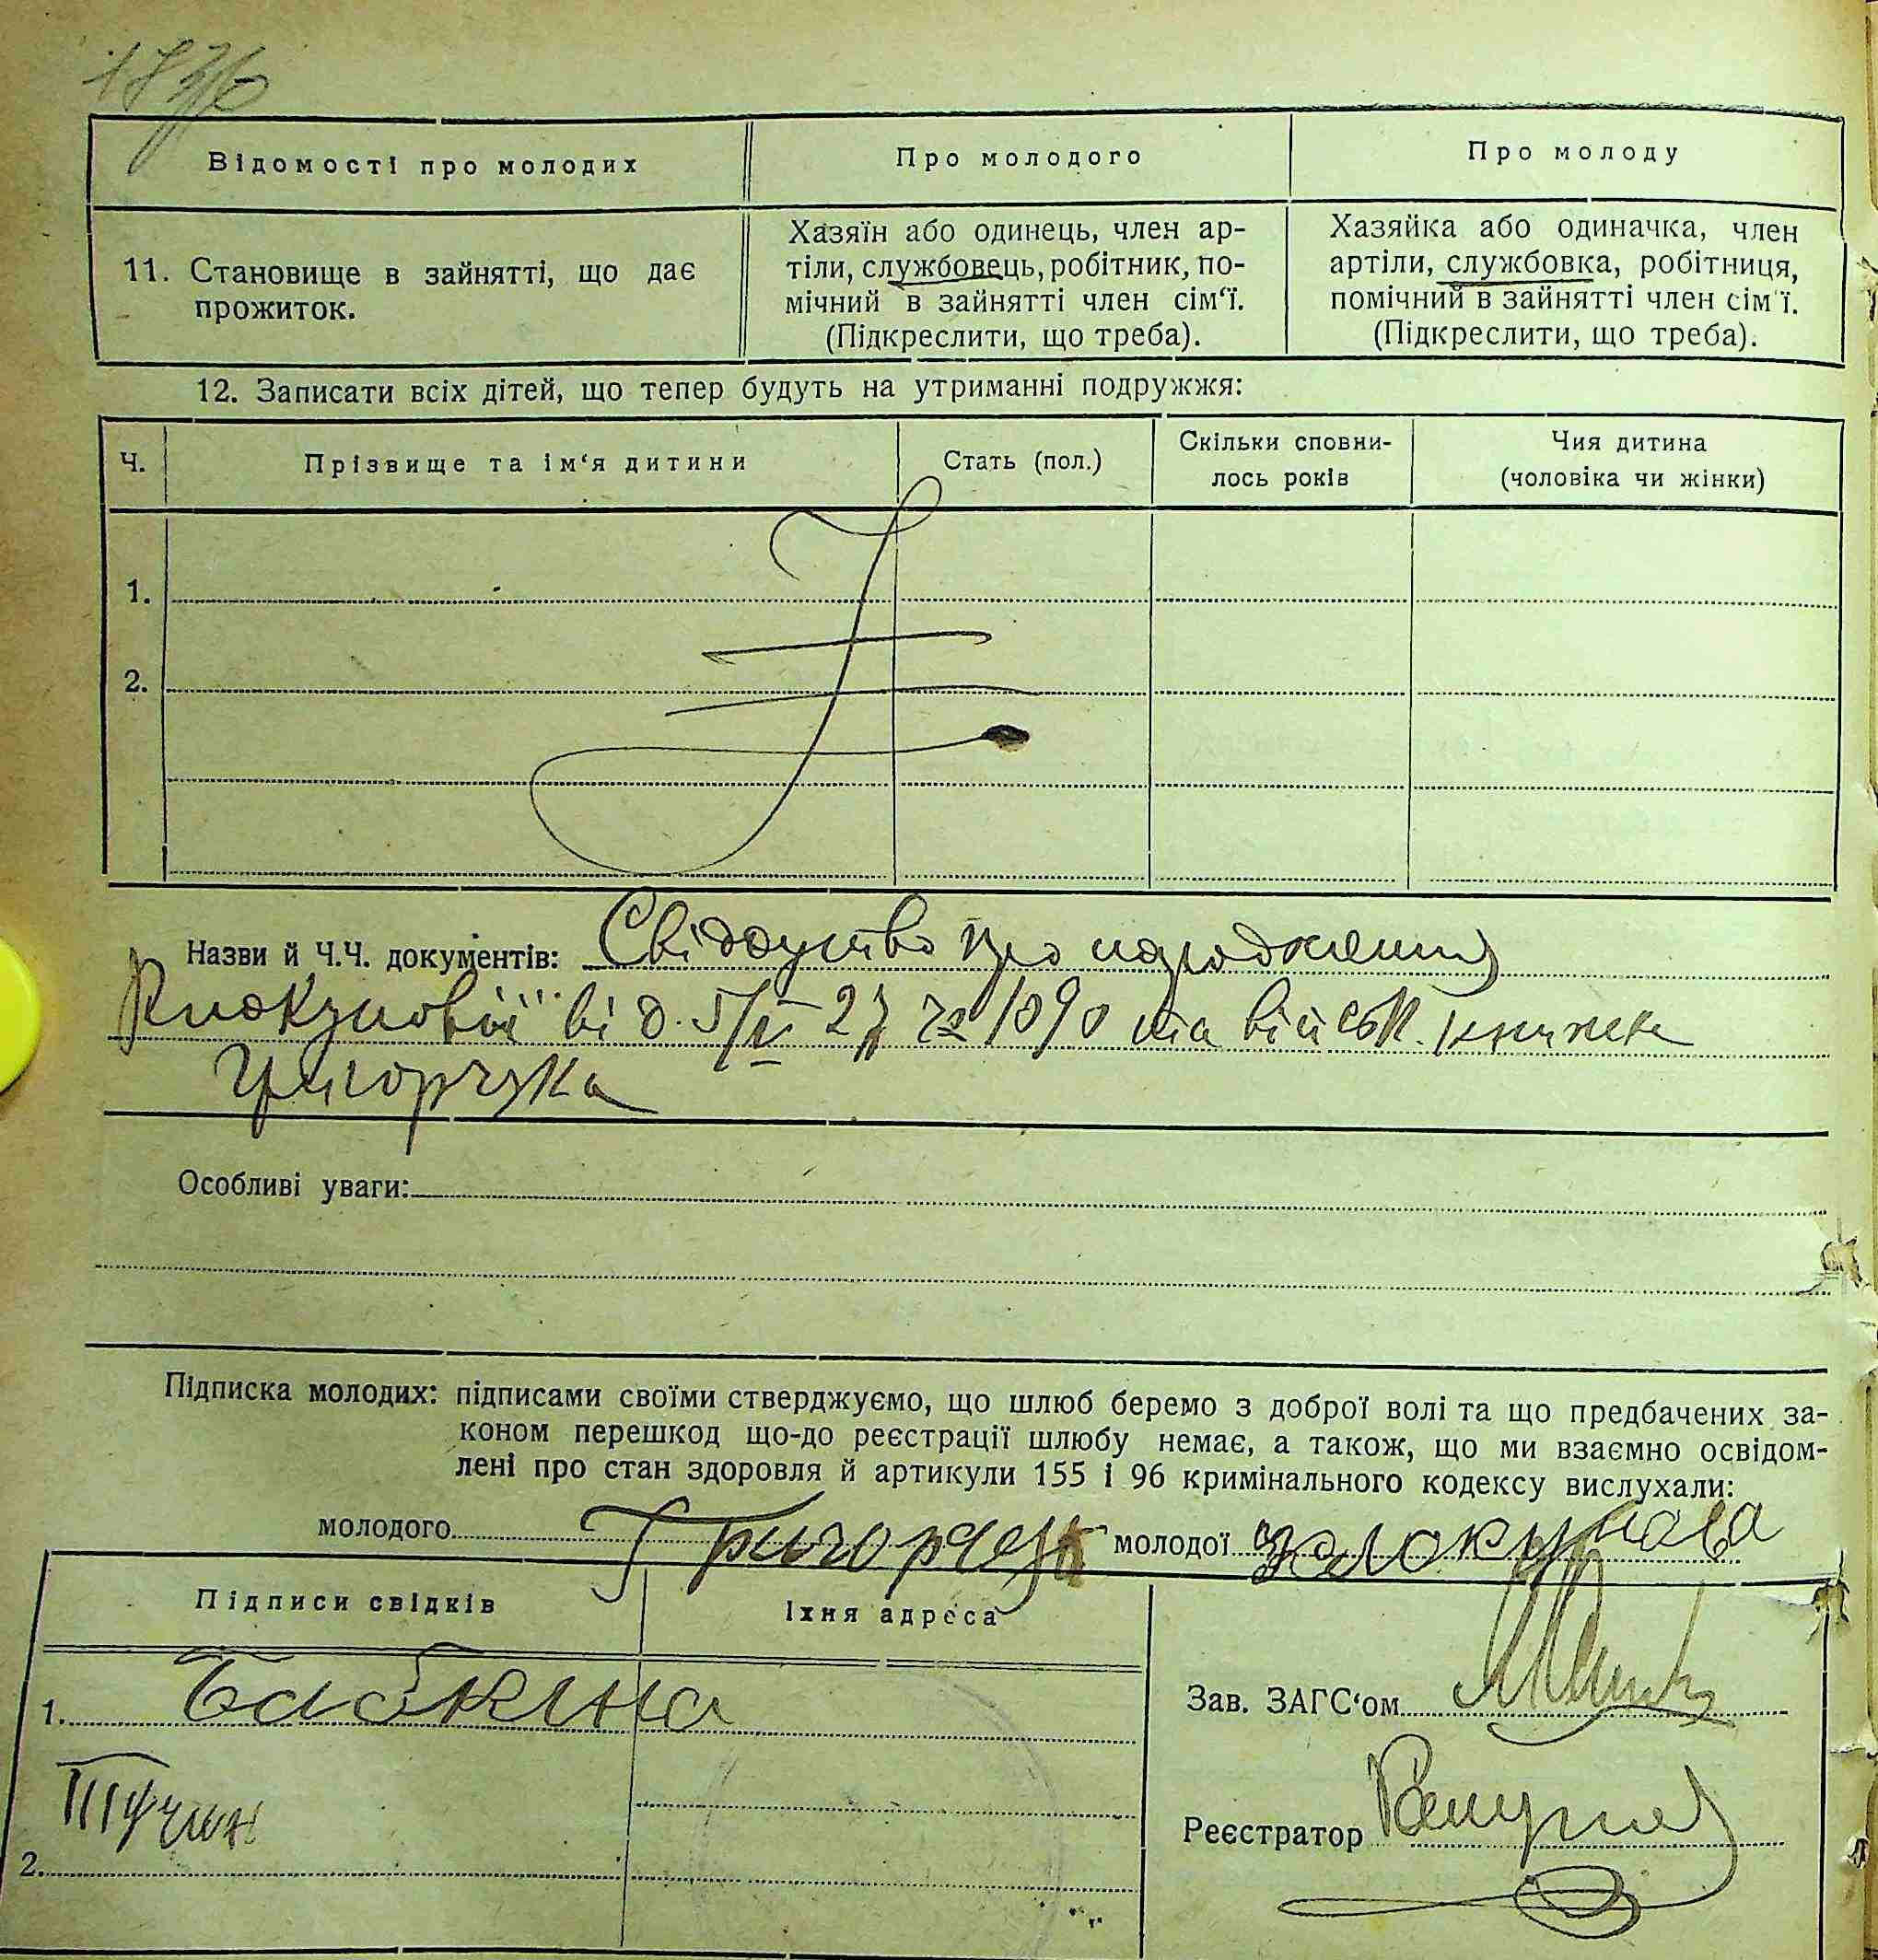 Відомості про молодих
Про молодого
Про молоду
11. Становище в зайнятті, що дає
прожиток.
Хазяїн або одинець, член ар-
тіли, службовець, робітник, по-
мічний в зайнятті член сім‘ї.
(Підкреслити, що треба).
Хазяйка або одиначка, член
артіли, службовка, робітниця,
помічний в зайнятті член сім‘ї.
(Підкреслити, що треба).
12. Записати всіх дітей, що тепер будуть на утриманні подружжя:
Ч.
Прізвище та ім‘я дитини
Стать (пол.)
Скільки сповни-
лось років
Чия дитина
(чоловіка чи жінки)
1.
2.
Назви й Ч.Ч. документів: Свідоцтво про народження
від 5/V 27 1090 та військ. книжка
Григорчука
Особливі уваги:
Підписка молодих: підписами своїми стверджуємо, що шлюб беремо з доброї волі та що предбачених за-
коном перешкод що-до реєстрації шлюбу немає, а також, що ми взаємно освідом-
лені про стан здоровля й артикули 155 і 96 кримінального кодексу вислухали:
молодого Григорчук молодої
Підписи свідків
Їхня адреса
1. Бабкина
2.
Зав. ЗАГС‘ом
Реєстратор